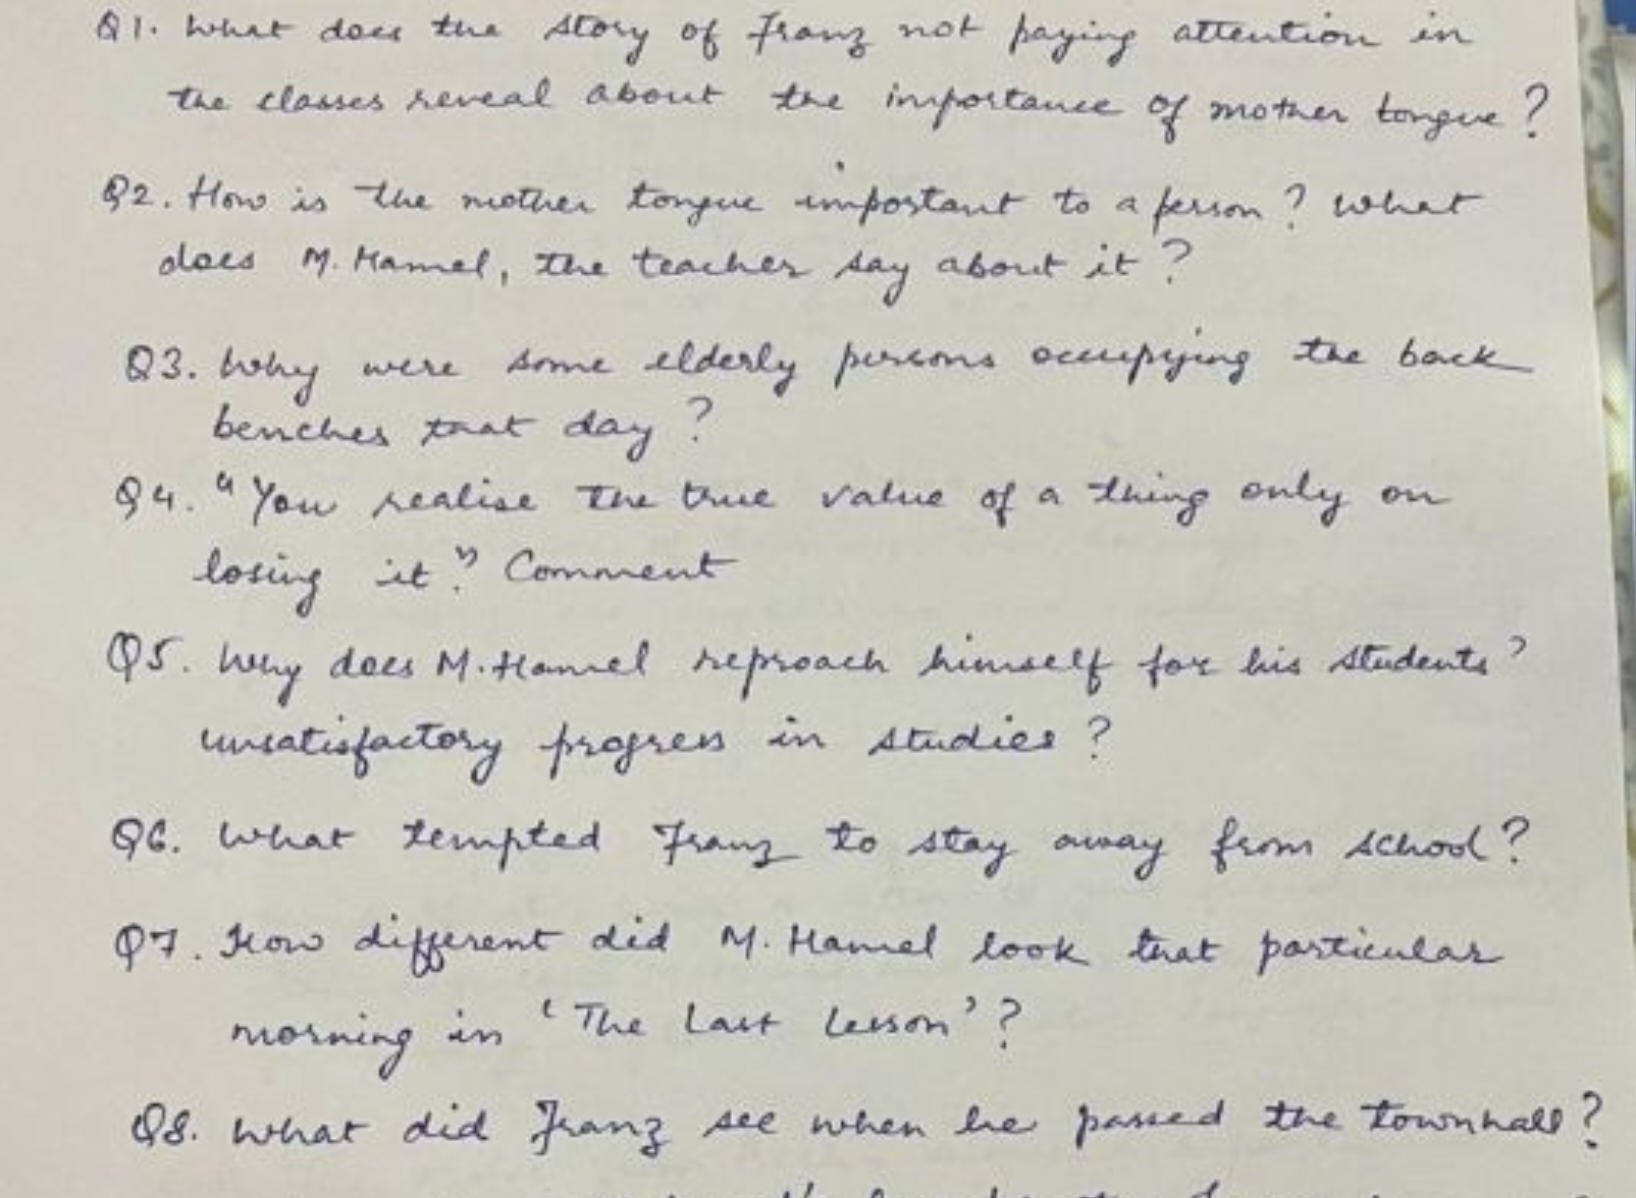 Q1. What does the story of Franz not paying attention in
the classes reveal about the importance of mother tongue?
Q2. How is the mother tongue important to a person? What
does M. Hamel, the teacher say about it?
Q3. Why were some elderly persons occupying the back
benches that day?
Q4. "You realise the true value of a thing only on
losing it." Comment
Q5. Why does M. Hamel reproach himself for his students'
unsatisfactory progress in studies?
Q6. What tempted Franz to stay away from school?
Q7. How different did M. Hamel look that particular
morning in 'The Last Lesson'?
Q8. What did Franz see when he passed the townhall?